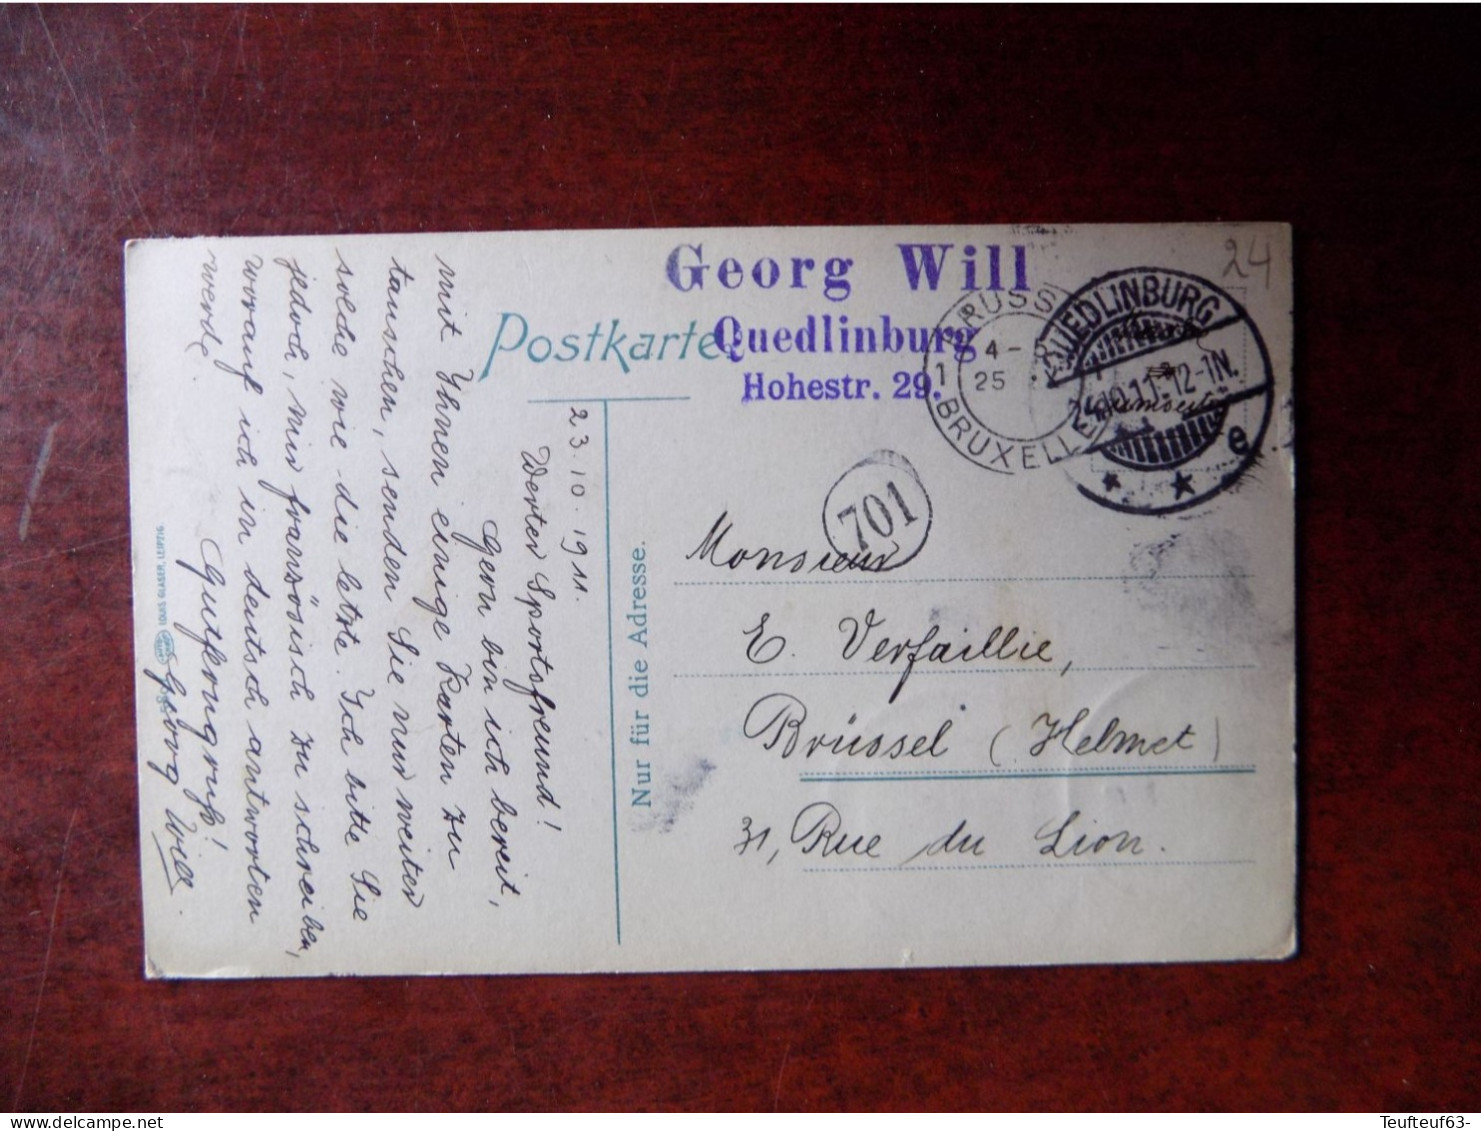 Georg Will
Quedlinburg
Hohestr. 29.
Postkarte
24
QUEDLINBURG
12-1N.
e
BRUSS
1
4-
25
BRUXELLE
701
Monsieur
E. Verfaillie,
Brüssel (Helmet)
31, Rue du Lion.
Nur für die Adresse.
23.10.1911.
Werter Sportsfreund!
Gern bin ich bereit,
mit Ihnen einige Karten zu
tauschen, senden Sie nur weiter
solche wie die letzte. Ich bitte Sie
jedoch, mir französisch zu schreiben,
worauf ich in deutsch antworten
werde.
Gutferngruß!
Georg Will.
LOUIS GLASER, LEIPZIG.
Teufteuf63-